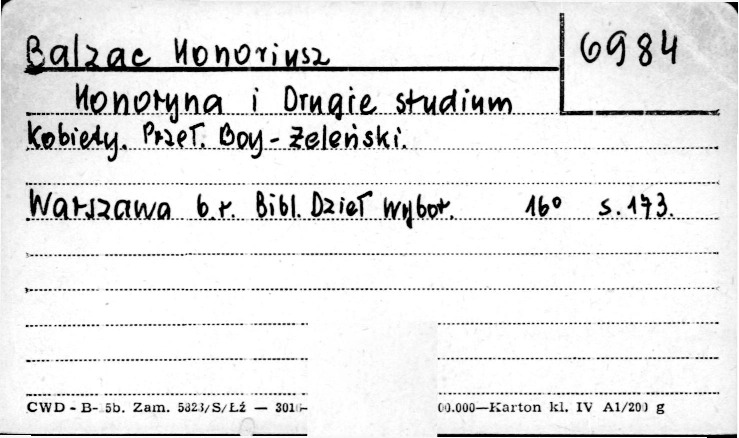 Balzac Honoriusz
6984
Honoryna i Drugie studium
Kobiety. Przeł. Boy-Żeleński.
Warszawa b.r. Bibl. Dzieł Wybor. 16° s. 173.
CWD - B- 5b. Zam. 5823/S/Łź — 00.000—Karton kl. IV A1/200 g